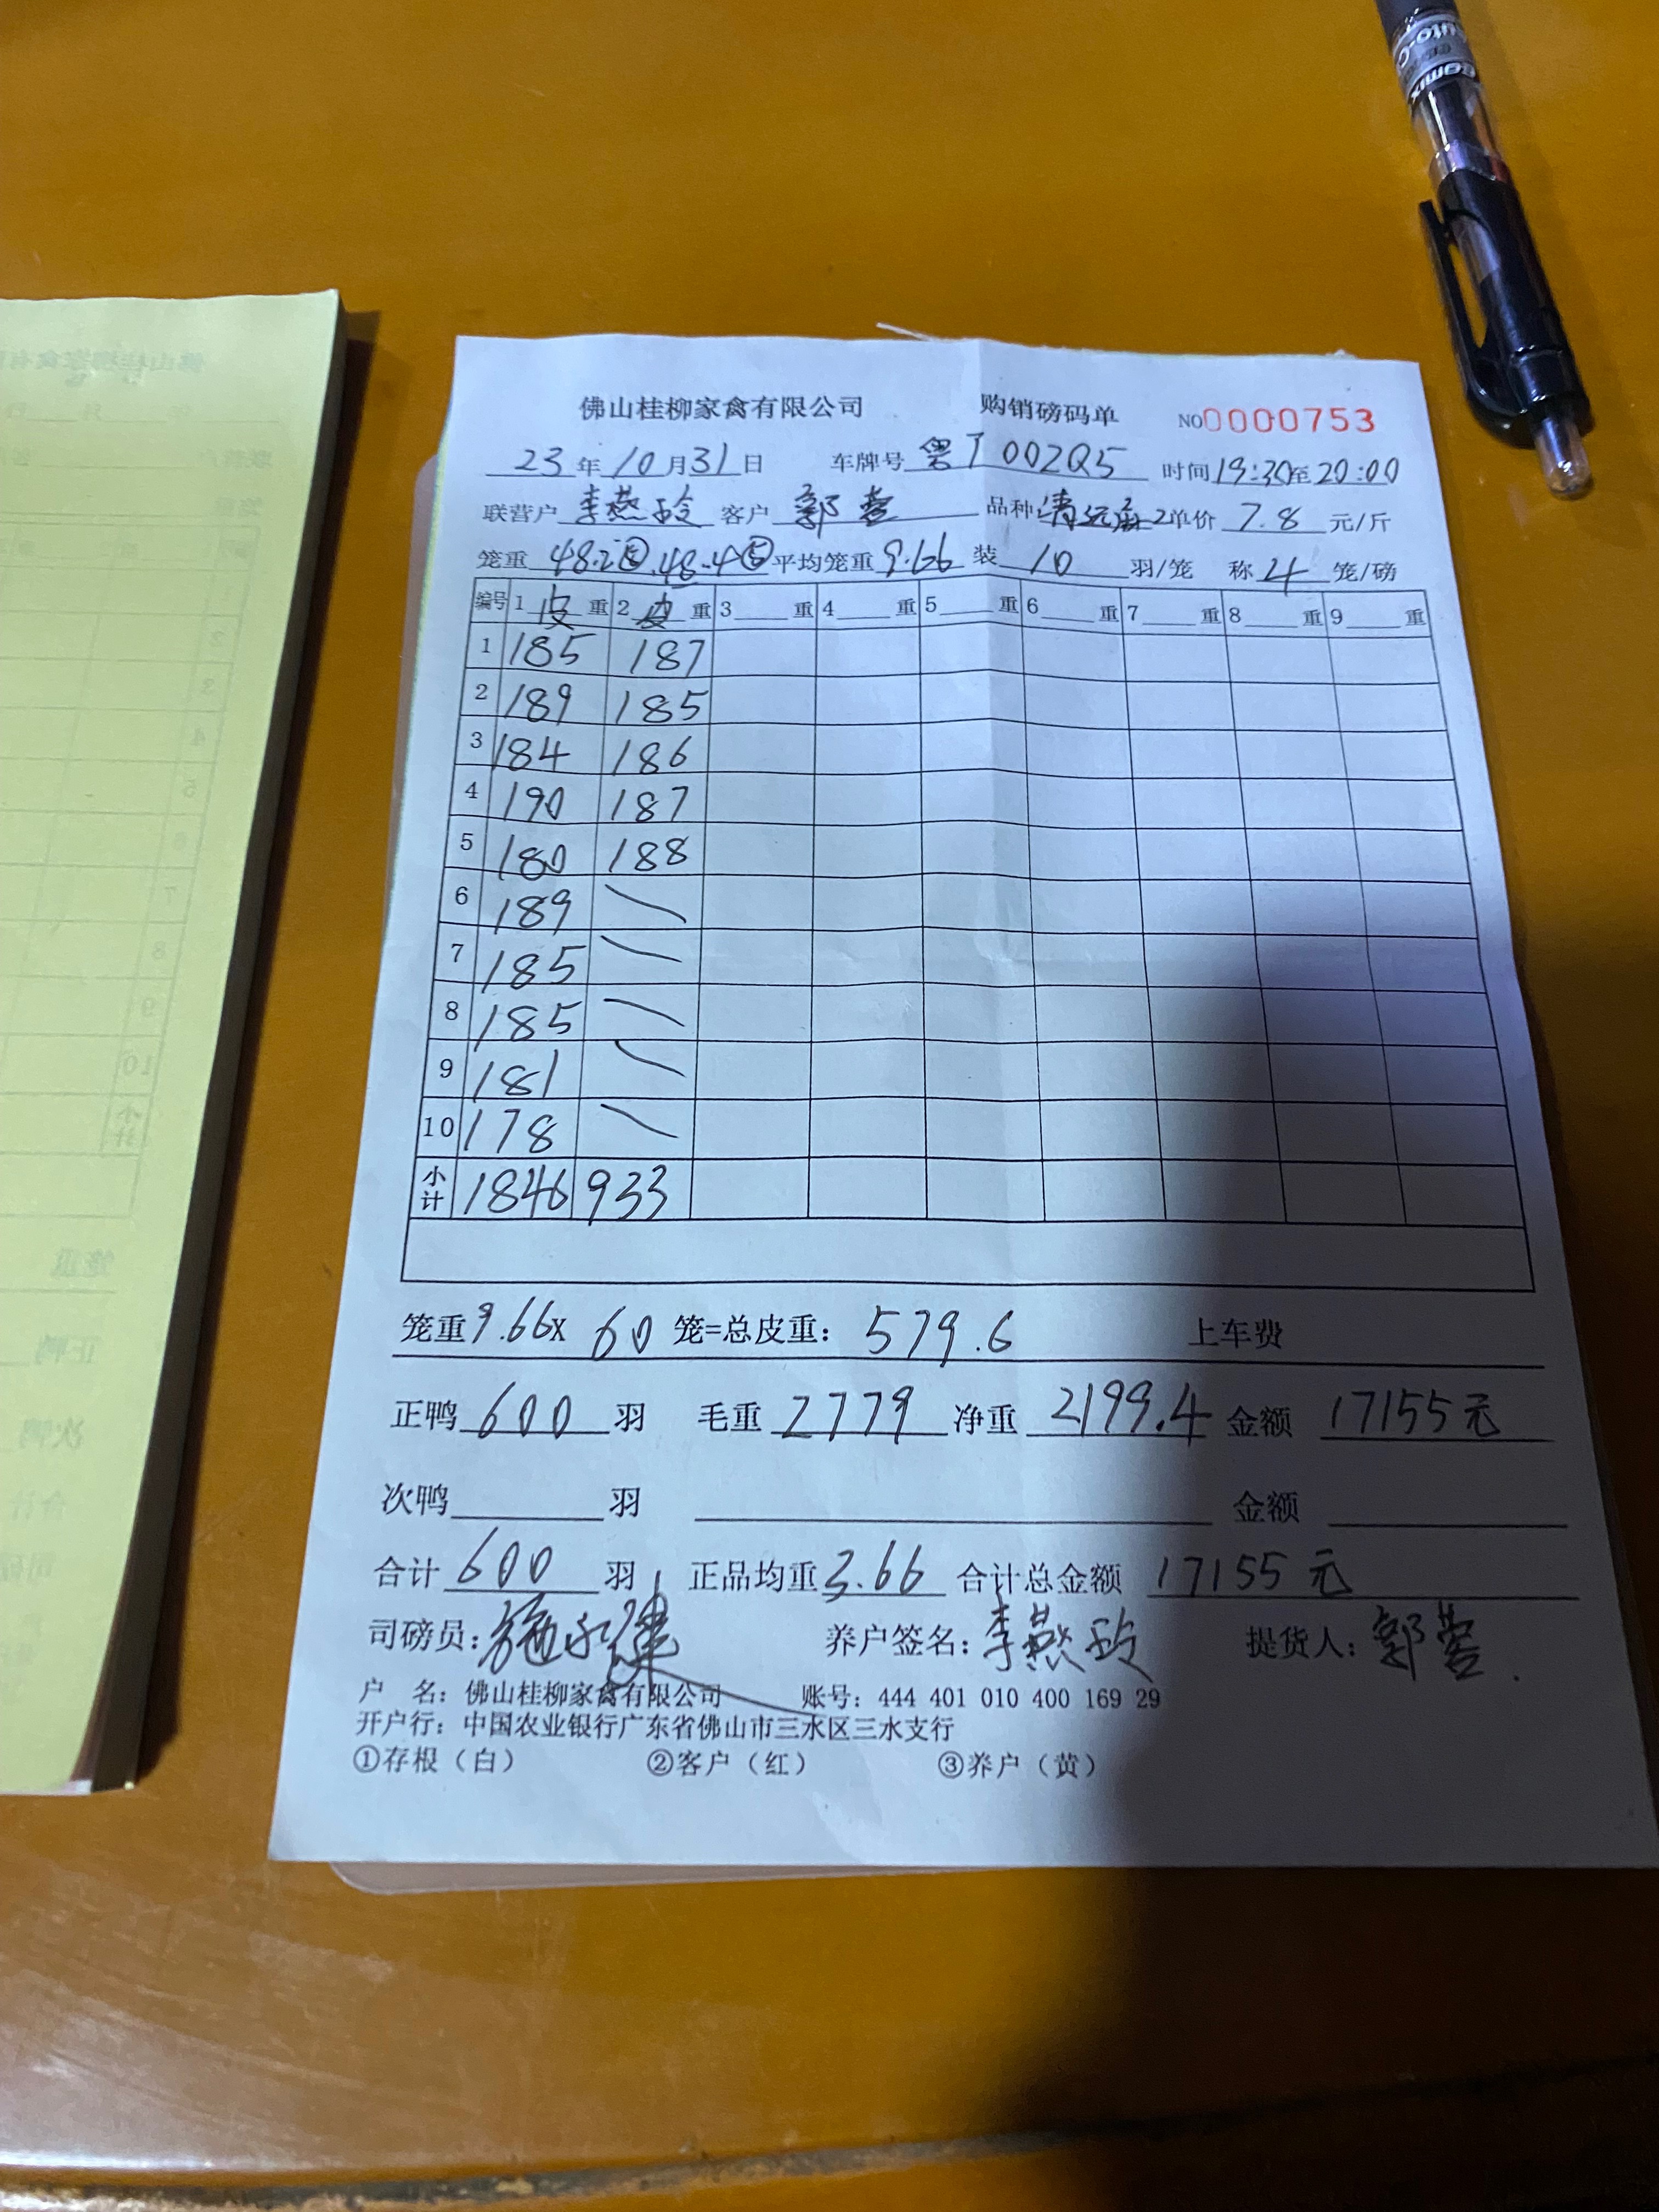 佛山桂柳家禽有限公司 购销磅码单 NO0000753
23年10月31日 车牌号粤J002Q5 时间19:30至20:00
联营户李燕玲 客户郭 品种清远麻2单价7.8元/斤
笼重48.2⑤.48.4⑤平均笼重9.66装10羽/笼 称4笼/磅
编号 1皮重 2皮重 3重 4重 5重 6重 7重 8重 9重
1 185 187
2 189 185
3 184 186
4 190 187
5 180 188
6 189
7 185
8 185
9 181
10 178
小计 1846 933
笼重9.66x60笼=总皮重：579.6 上车费
正鸭600羽 毛重2779净重2199.4金额17155元
次鸭羽 金额
合计600羽 正品均重3.66合计总金额17155元
司磅员：施永健 养户签名：李燕玲 提货人：郭
户 名：佛山桂柳家禽有限公司 账号：444 401 010 400 169 29
开户行：中国农业银行广东省佛山市三水区三水支行
①存根（白） ②客户（红） ③养户（黄）